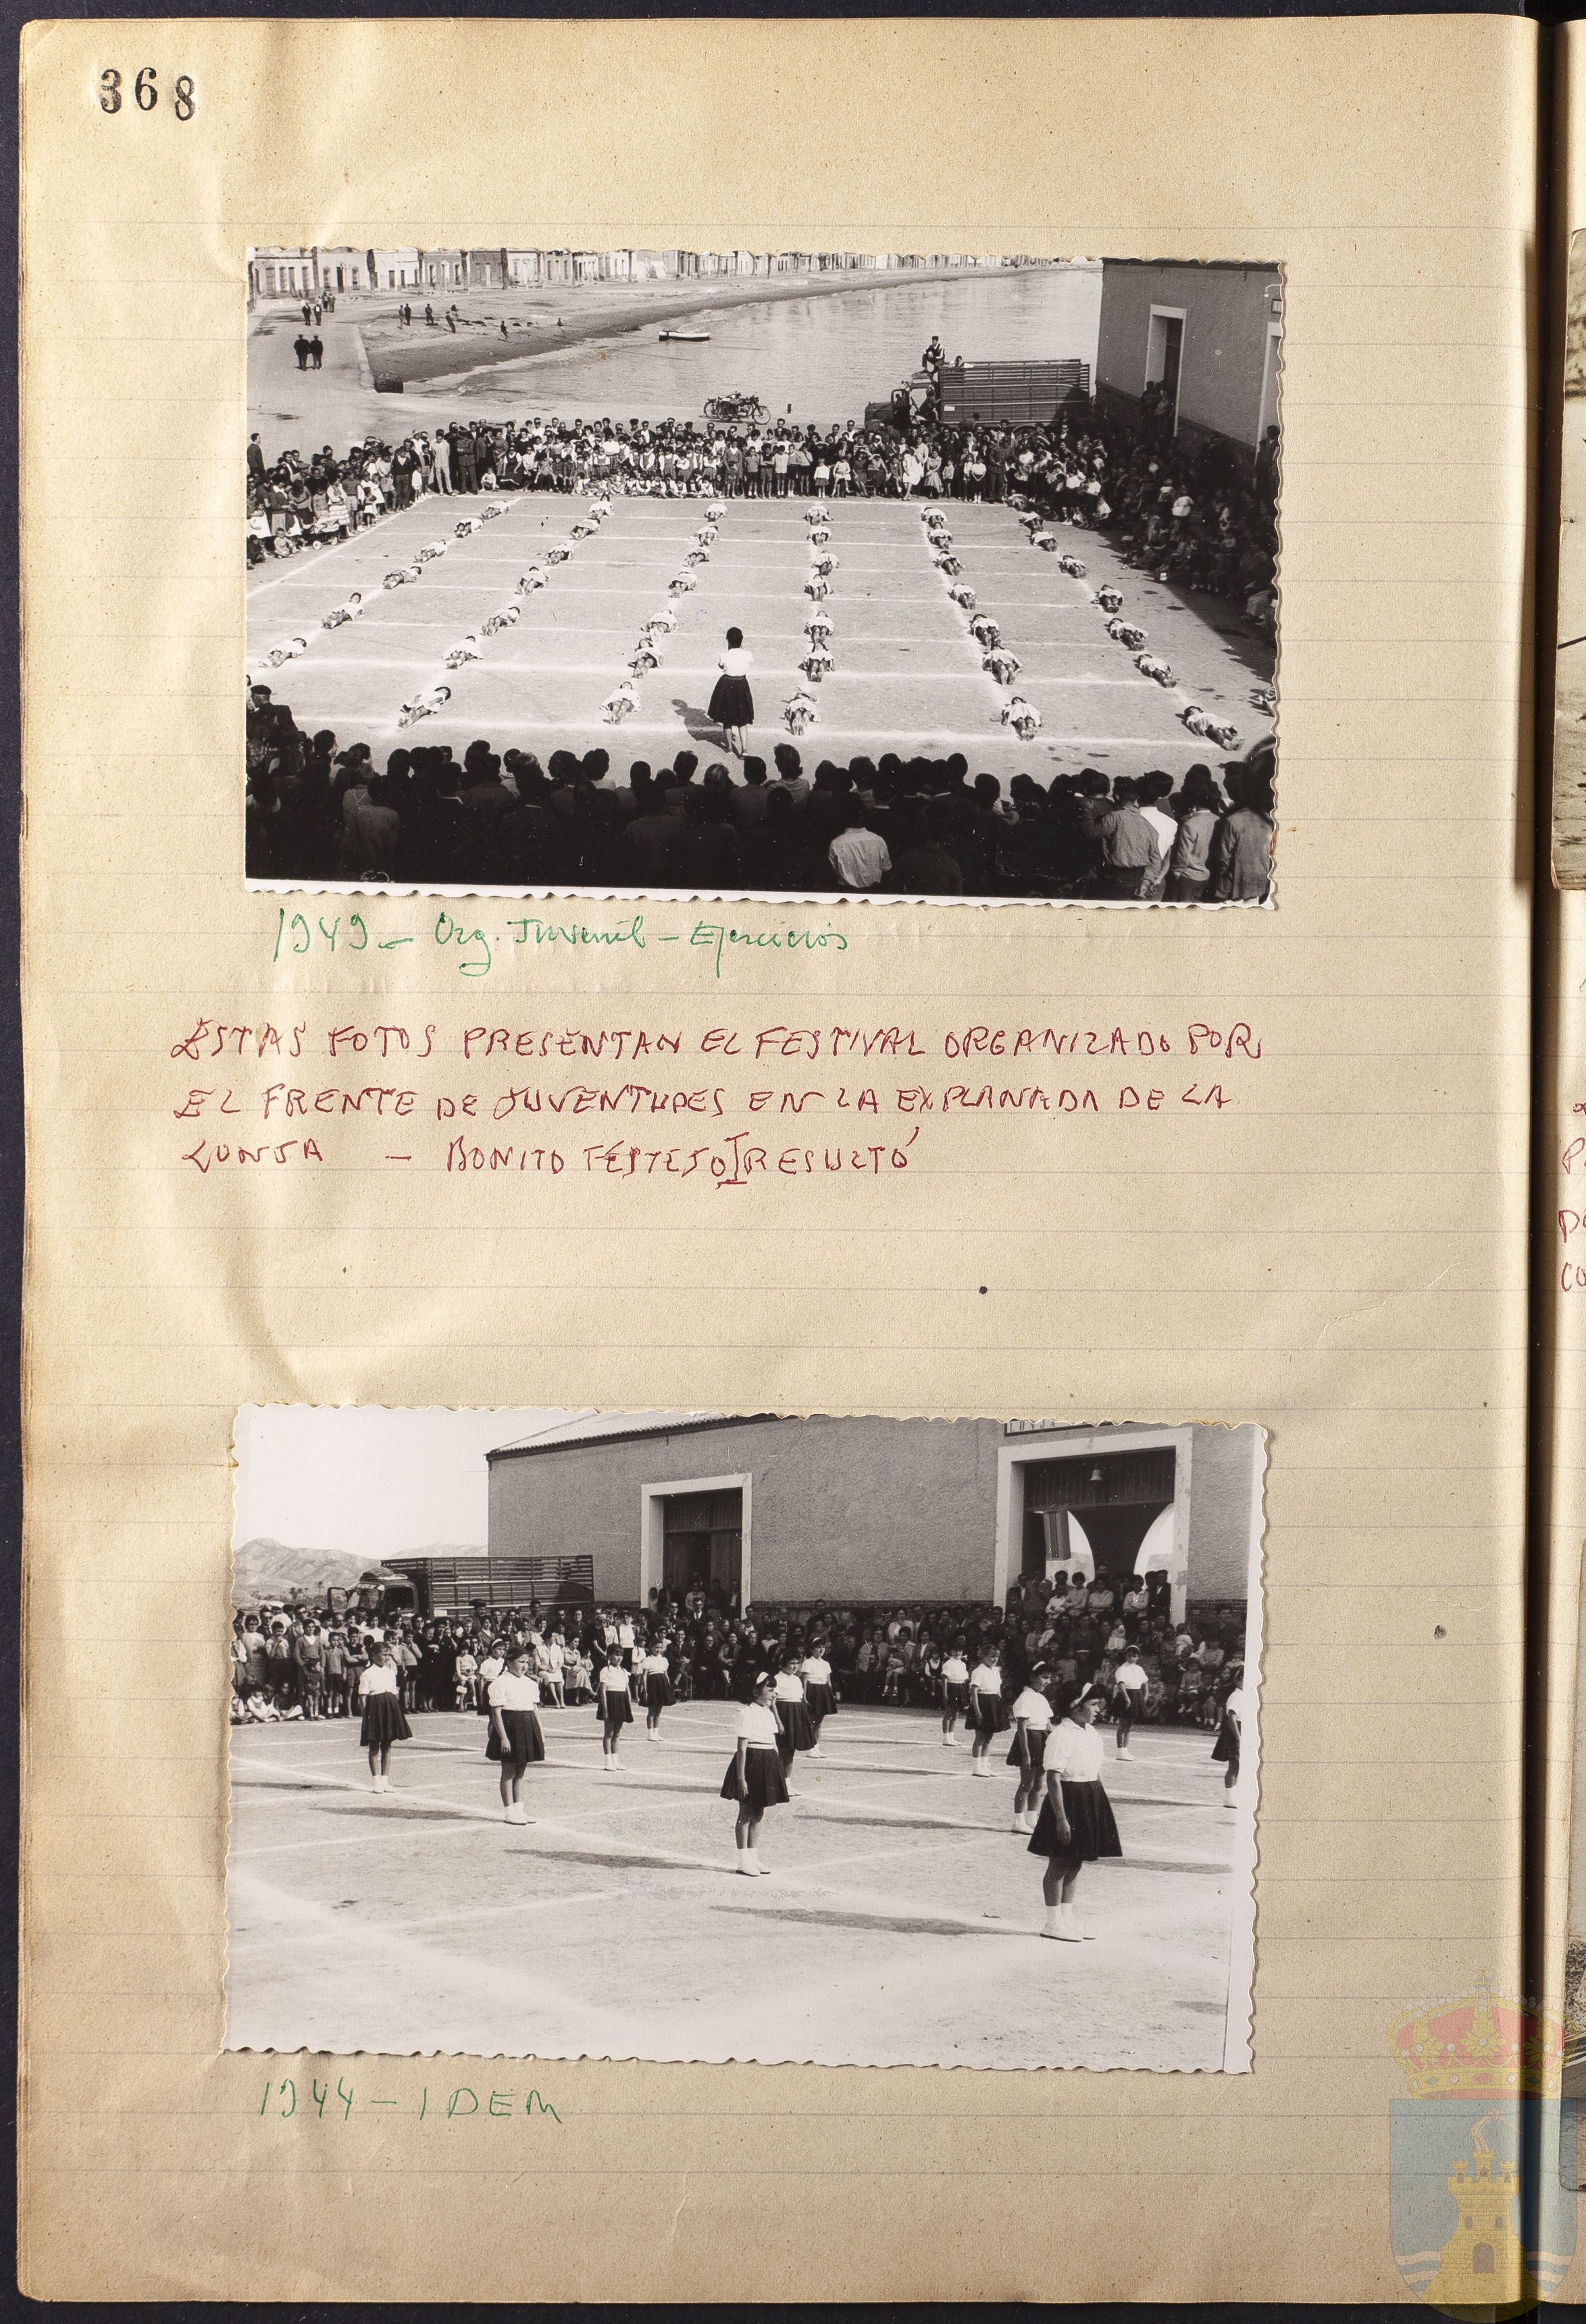 368
1949 - Org. Juvenil - Ejercicios
ESTAS FOTOS PRESENTAN EL FESTIVAL ORGANIZADO POR
EL FRENTE DE JUVENTUDES EN LA EXPLANADA DE LA
LONJA - BONITO FESTEJO RESULTÓ
LONJA
1944 - IDEM